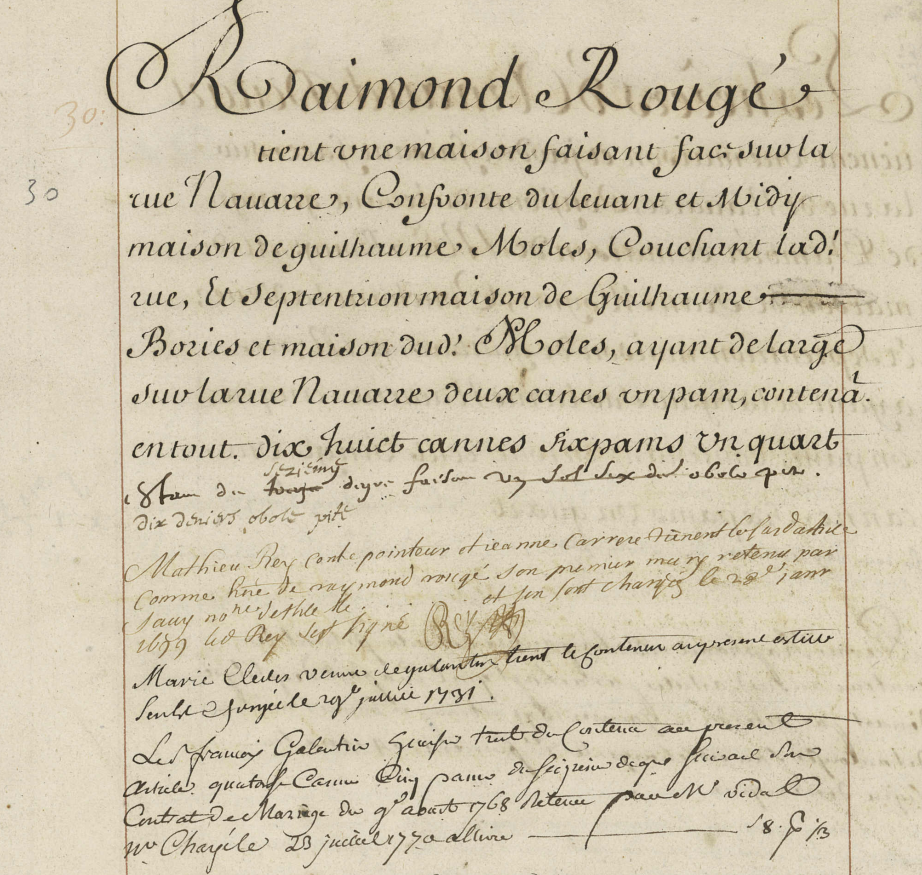 Raimond Rougé
30.
tient vne maison faisant face sur la
30
rue Nauarre, Confronte du leuant et Midy
maison de guilhaume Moles, Couchant lad.^t
rue, Et Septentrion maison de Guilhaume
Bories et maison dud.^t Moles, ayant de large
sur la rue Nauarre deux canes vn pam, contenã.^t
en tout. dix huict cannes six pams vn quart
sezieme
degre faison vn sol six den obole pite.
dix deniers obole pite
Mathieu Rey pointeur et jeanne Carrere tienent le susd article
comme de raymond rougé son premier mary retenu par
et sen sont chargés le 28^e janr
1699 led Rey sest signé Rey
Marie veuue de galantin tient le contenu au present article
juillet 1731.
Le S^r françois Galentin tient du Contenu au present
article quatorse Canne Cinq pams
Contrat de Mariage du 9^e aout 1768 Retenu par M^e vidal
n^re Chargé le 23 juillet 1770 alliure